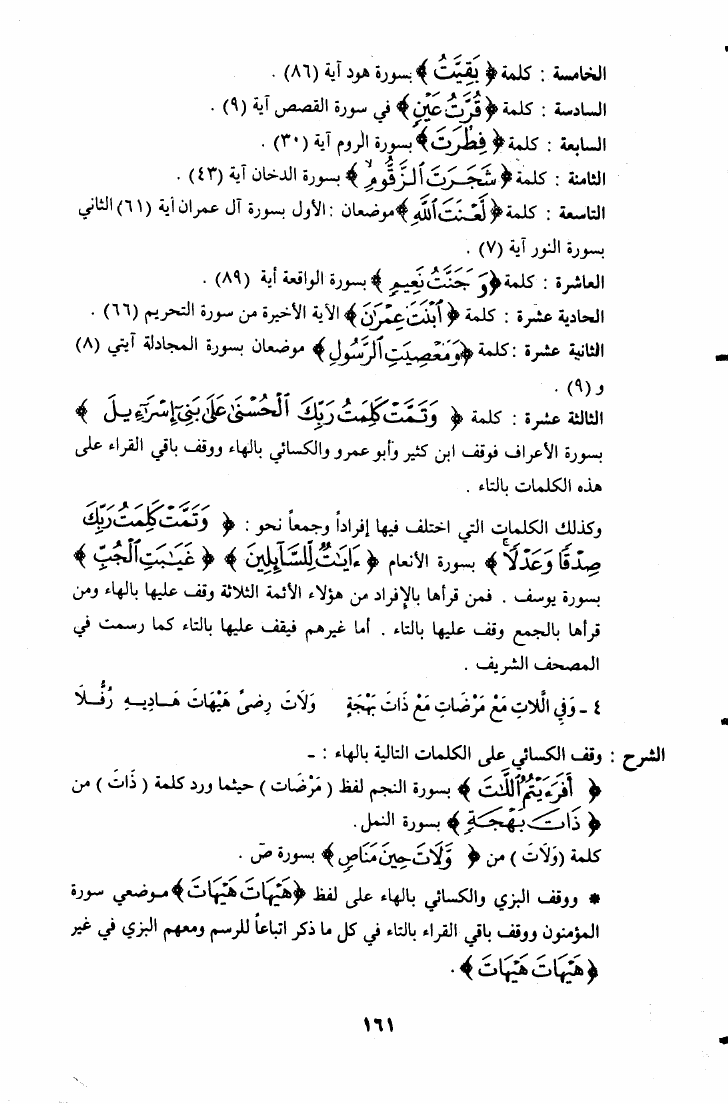 الخامسة : كلمة ﴿ بَقِيَّتُ ﴾ بسورة هود آية (٨٦) .
السادسة : كلمة ﴿ قُرَّتُ عَيْنٍ ﴾ في سورة القصص آية (٩) .
السابعة : كلمة ﴿ فِطْرَتَ ﴾ بسورة الروم آية (٣٠) .
الثامنة : كلمة ﴿ شَجَرَتَ الزَّقُّومِ ﴾ بسورة الدخان آية (٤٣) .
التاسعة : كلمة ﴿ لَّعْنَتَ اللَّهِ ﴾ موضعان : الأول بسورة آل عمران آية (٦١) الثاني
بسورة النور آية (٧) .
العاشرة : كلمة ﴿ وَجَنَّتُ نَعِيمٍ ﴾ بسورة الواقعة أية (٨٩) .
الحادية عشرة : كلمة ﴿ ابْنَتَ عِمْرَانَ ﴾ الآية الأخيرة من سورة التحريم (٦٦) .
الثانية عشرة : كلمة ﴿ وَمَعْصِيَتِ الرَّسُولِ ﴾ موضعان بسورة المجادلة آيتي (٨)
و (٩) .
الثالثة عشرة : كلمة ﴿ وَتَمَّتْ كَلِمَتُ رَبِّكَ الْحُسْنَىٰ عَلَىٰ بَنِي إِسْرَائِيلَ ﴾
بسورة الأعراف فوقف ابن كثير وأبو عمرو والكسائي بالهاء ووقف باقي القراء على
هذه الكلمات بالتاء .
وكذلك الكلمات التي اختلف فيها إفراداً وجمعاً نحو : ﴿ وَتَمَّتْ كَلِمَتُ رَبِّكَ
صِدْقًا وَعَدْلًا ﴾ بسورة الأنعام ﴿ ءَايَٰتٌ لِّلسَّآئِلِينَ ﴾ ﴿ غَيَٰبَتِ الْجُبِّ ﴾
بسورة يوسف . فمن قرأها بالإفراد من هؤلاء الأئمة الثلاثة وقف عليها بالهاء ومن
قرأها بالجمع وقف عليها بالتاء . أما غيرهم فيقف عليها بالتاء كما رسمت في
المصحف الشريف .
٤ - وَفِي الَّلاتِ مَعْ مَرْضَاتِ مَعْ ذَاتَ بَهْجَةٍ وَلَاتَ رِضىً هَيْهَاتَ هَادِيهِ رُفِّلَا
الشرح : وقف الكسائي على الكلمات التالية بالهاء : -
﴿ أَفَرَءَيْتُمُ اللَّٰتَ ﴾ بسورة النجم لفظ ( مَرْضَات ) حيثما ورد كلمة ( ذَاتَ ) من
﴿ ذَاتَ بَهْجَةٍ ﴾ بسورة النمل.
كلمة (وَلَاتَ ) من ﴿ وَّلَاتَ حِينَ مَنَاصٍ ﴾ بسورة صَ .
* ووقف البزي والكسائي بالهاء على لفظ ﴿ هَيْهَاتَ هَيْهَاتَ ﴾ موضعي سورة
المؤمنون ووقف باقي القراء بالتاء في كل ما ذكر اتباعاً للرسم ومعهم البزي في غير
﴿ هَيْهَاتَ هَيْهَاتَ ﴾ .
١٦١